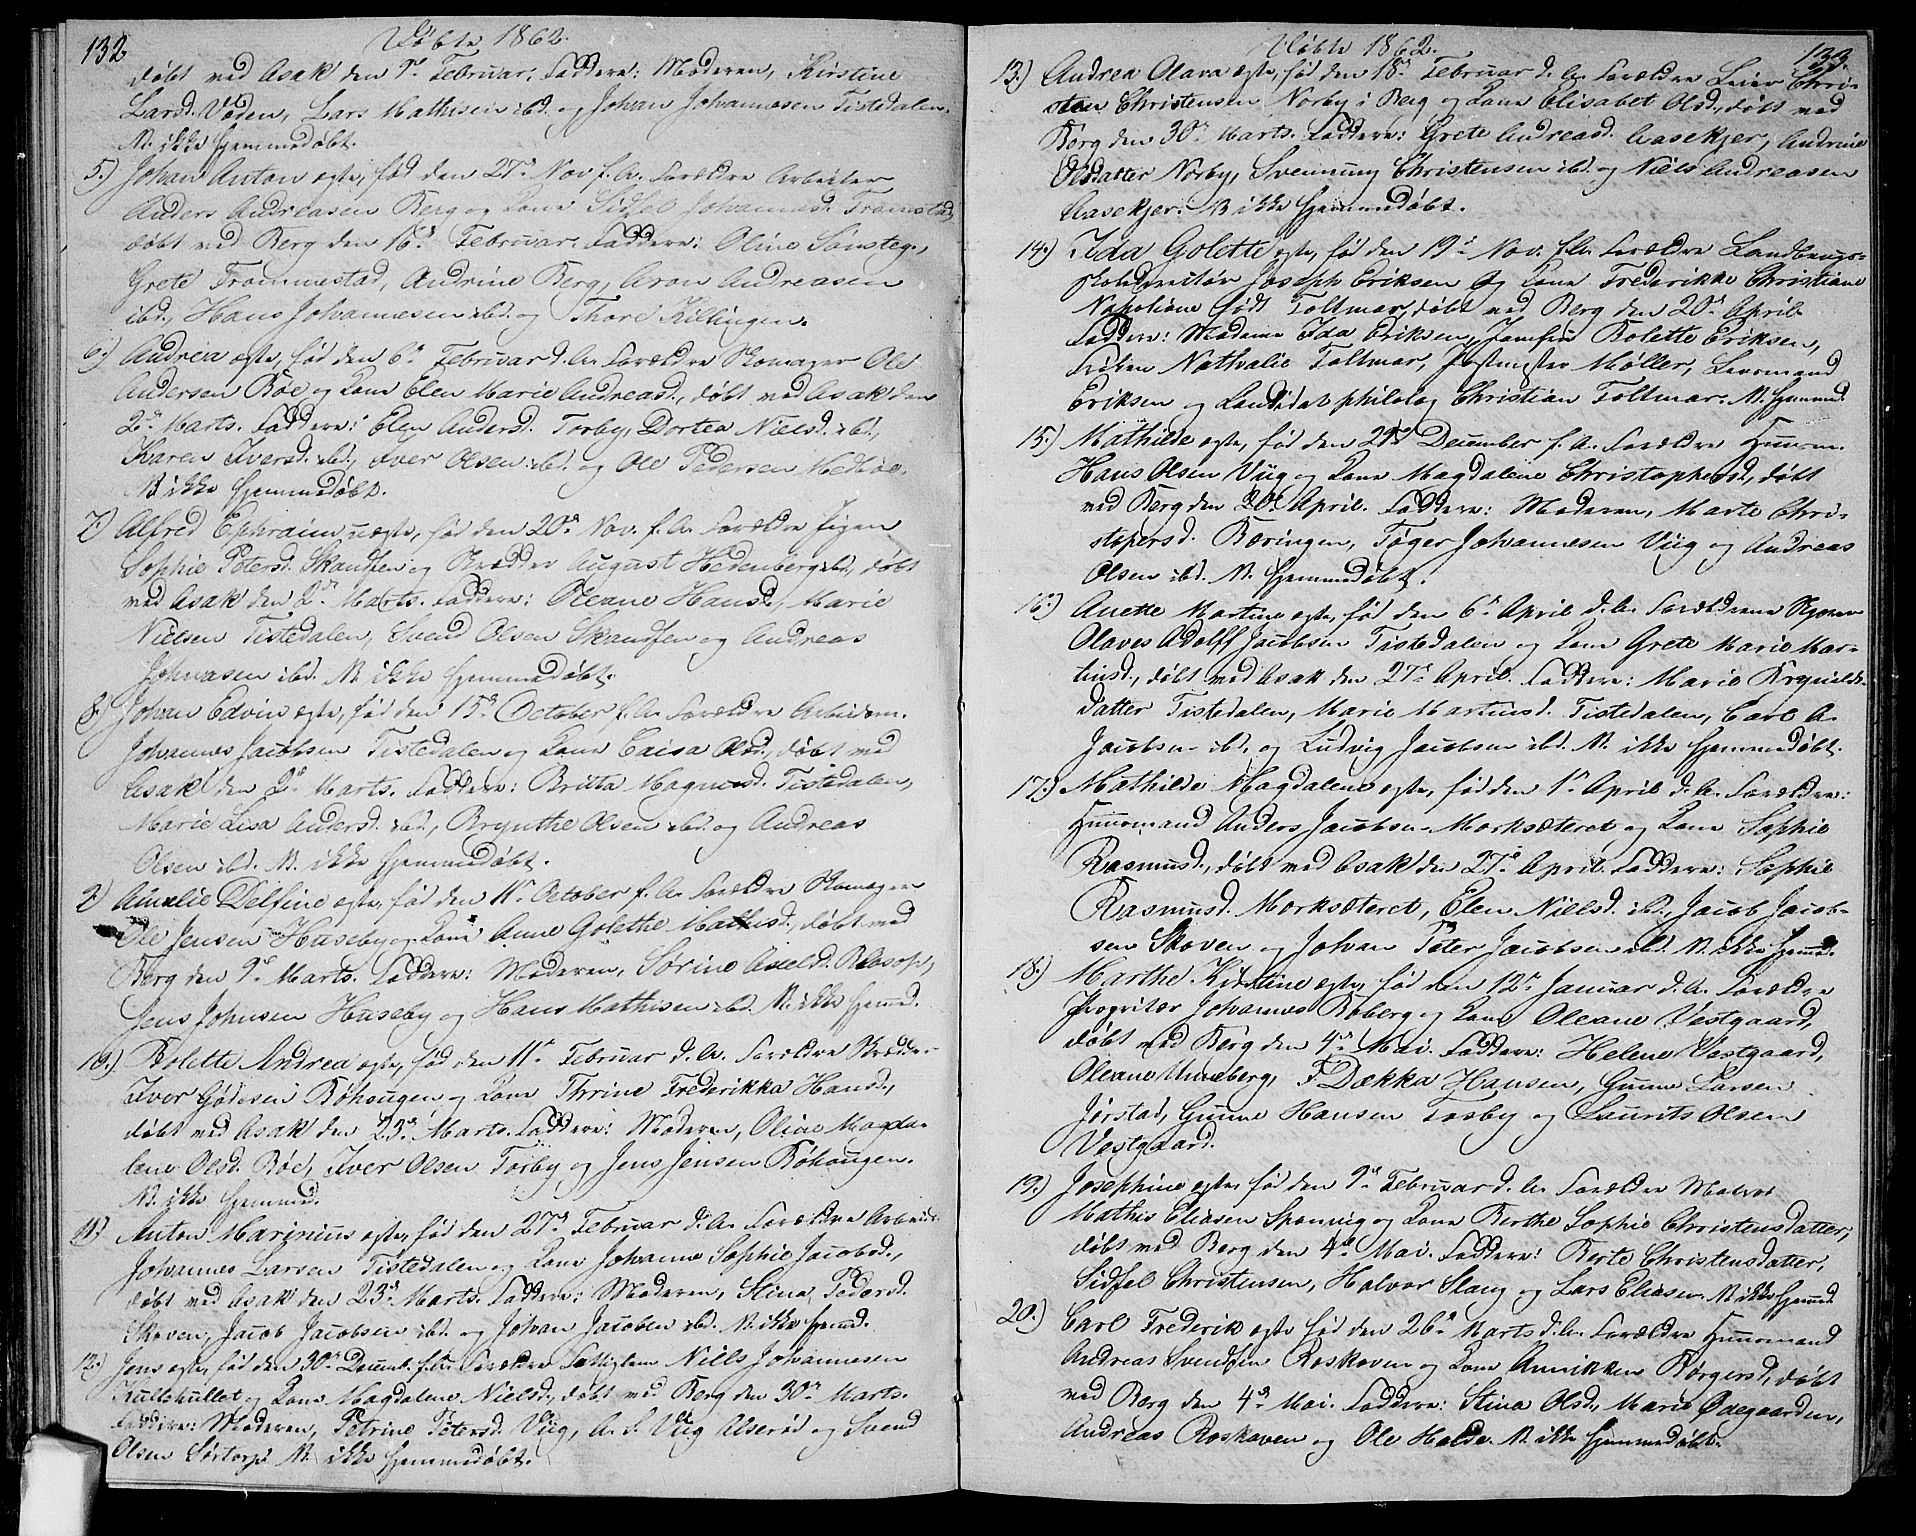 132
Døbte 1862.
døbt ved Asak den 9de Februar. Faddere: Moderen, Kirstine
Larsd. Veden, Lars Mathisen ibd. og Johan Johannesen Tistedalen.
N. ikke hjemmedøbt.
5.) Johan Anton ægte, fød den 27de Nov. f. A. Forældre Arbeider
Anders Andreasen Berg og Kone Sidsel Johannesd. Tromstad,
døbt ved Berg den 16de Februar. Faddere: Oline Sønsteg.,
Grete Trommestad, Andrine Berg, Aron Andreasen
ibd., Hans Johannesen ibd. og Thore Killingen.
6.) Andrea ægte, fød den 6te Februar d. A. Forældre Skomager Ole
Andersen Bøe og Kone Elen Marie Andreasd., døbt ved Asak den
2den Marts. Faddere: Elen Andersd. Torby, Dortea Nielsd. ibd.,
Karen Iversd. ibd., Iver Olsen ibd. og Ole Pedersen
N. ikke hjemmedøbt.
7.) Alfred Ephraim uægte, fød den 20de Nov. f. A. Forældre Pigen
Sophie Petersd. Skandsen og Skrædder August Hedenberg ibd., døbt
ved Asak den 2den Marts. Faddere: Oleane Hansd., Marie
Nielsen Tistedalen, Svend Olsen Skandsen og Andreas
Johnasen ibd. N. ikke hjemmedøbt.
8.) Johan Edvin ægte, fød den 15de October f. A. Forældre Arbeidsm.
Johannes Jacobsen Tistedalen og Kone Caisa Olsd., døbt ved
Asak den 2den Marts. Faddere: Britta Magnusd. Tistedalen,
Marie Lisa Andersd. ibd., Brynthe Olsen ibd. og Andreas
Olsen ibd. N. ikke hjemmedøbt.
9.) Amalie Delfine ægte, fød den 11te October f. A. Forældre Skomager
Ole Jensen Huseby og Kone Anne Golethe Mathisd., døbt ved
Berg den 9de Marts. Faddere: Moderen, Sørine Axelsd.
Jens Johnsen Huseby og Hans Mathisen ibd. N. ikke hjemmed.
10.) Bolette Andrea ægte, fød den 11te Februar d. A. Forældre Skrædder
Iver Gødesen Røhougen og Kone Thrine Frederikka Hansd.,
døbt ved Asak den 23de Marts. Faddere: Moderen, Oline Magda-
lene Olsd. Bøe, Iver Olsen Torby og Jens Jensen Røhougen.
N. ikke hjemmed.
11.) Anton Marinius ægte, fød den 27de Februar d. A. Forældre Arbeids.
Johannes Larsen Tistedalen og Kone Johanne Sophie Jacobsd.,
døbt ved Asak den 23de Marts. Faddere: Moderen, Stina Pedersd.
Skoven, Jacob Jacobsen ibd. og Johan Jacobsen ibd. N. ikke hjemmd.
12.) Jens ægte, fød den 30te Decemb. f. A. Forældre Fattiglem Niels Johannesen
Kullehullet og Kone Magdalene Nielsd., døbt ved Berg den 30te Marts.
Faddere: Moderen, Petrine Petersd. Viig, A. S. Viig Alserød og Svend
Olsen Sørtorp. N. ikke hjemmedøbt.
Døbte 1862.
133.
13.) Andrea Olava ægte, fød den 18de Februar d. A. Forældre Leier Chri-
stian Christensen Norby i Berg og Kone Elisabet Olsd., døbt ved
Berg den 30te Marts. Faddere: Grete Andreasd. Aasekjer, Andrine
Olsdatter Norby, Svenning Christensen ibd. og Niels Andreasen
Aasekjer. N. ikke hjemmedøbt.
14.) Ida Golette ægte, fød den 19de Nov. f. A. Forældre Landbrugs-
skoledirectør Joseph Eriksen og Kone Frederikke Christiane
Napoline født Tollmar, døbt ved Berg den 20de April.
Faddere: Madame Ida Eriksen, Jomfru Bolette Eriksen,
Frøken Nathalie Tollmar, Postmester Møller, Leensmand
Eriksen og Candidat philolog Christian Tollmar. N. hjemmed.
15.) Mathilde ægte, fød den 29de December f. A. Forældre Huusm.
Hans Olsen Viig og Kone Magdalene Christophersd., døbt
ved Berg den 20de April. Faddere: Moderen, Marte Chri-
stopersd. Bæringen, Tøger Johannesen Viig og Andreas
Olsen ibd. N. hjemmedøbt.
16.) Anette Martine ægte, fød den 6te April d. A. Forældrene
Olaves Adolff Jacobsen Tistedalen og Kone Grete Marie Mar-
tinsd., døbt ved Asak den 27de April. Faddere: Marie Krynilds-
datter Tistedalen, Marie Martinsd. Tistedalen, Carl A.
Jacobsen ibd. og Ludvig Jacobsen ibd. N. ikke hjemmedøbt.
17.) Mathilde Magdalene ægte, fød den 1ste April d. A. Forældre:
Huusmand Anders Jacobsen Morksæteret og Kone Sophie
Rasmusd., døbt ved Asak den 27de April. Faddere: Sophie
Rasmusd. Morksæteret, Elen Nielsd. ibd., Jacob Jacob-
sen Skoven og Johan Peter Jacobsen ibd. N. ikke hjemmd.
18.) Marthe Kirstine ægte, fød den 12te Januar d. A. Forældre
Propritær Johannes Roberg og Kone Oleane Vestgaard,
døbt ved Berg den 4de Mai. Faddere: Helene Vestgaard,
Oleane Unneberg, F Dækka Hansen, Gunne Larsen
Jørstad, Gunne Hansen Torby og Laurits Olsen
Vestgaard.
19.) Josephine ægte, fød den 9de Februar d. A. Forældre
Mathis Eliasen Sponvig og Kone Berthe Sophie Christensdatter,
døbt ved Berg den 4de Mai. Faddere: Berte Christensdatter,
Sidsel Christensen, Halvor Stang og Lars Eliasen. N. ikke hjemmd.
20.) Carl Frederik ægte fød den 26de Marts d. A. Forældre Huusmand
Andreas Svendsen Roskoven og Kone Annikken Børgersd., døbt
ved Berg den 4de Mai. Faddere: Stina Olsd., Marie Ødegaarden,
Andreas Roskoven og Ole Holde. N. ikke hjemmedøbt.